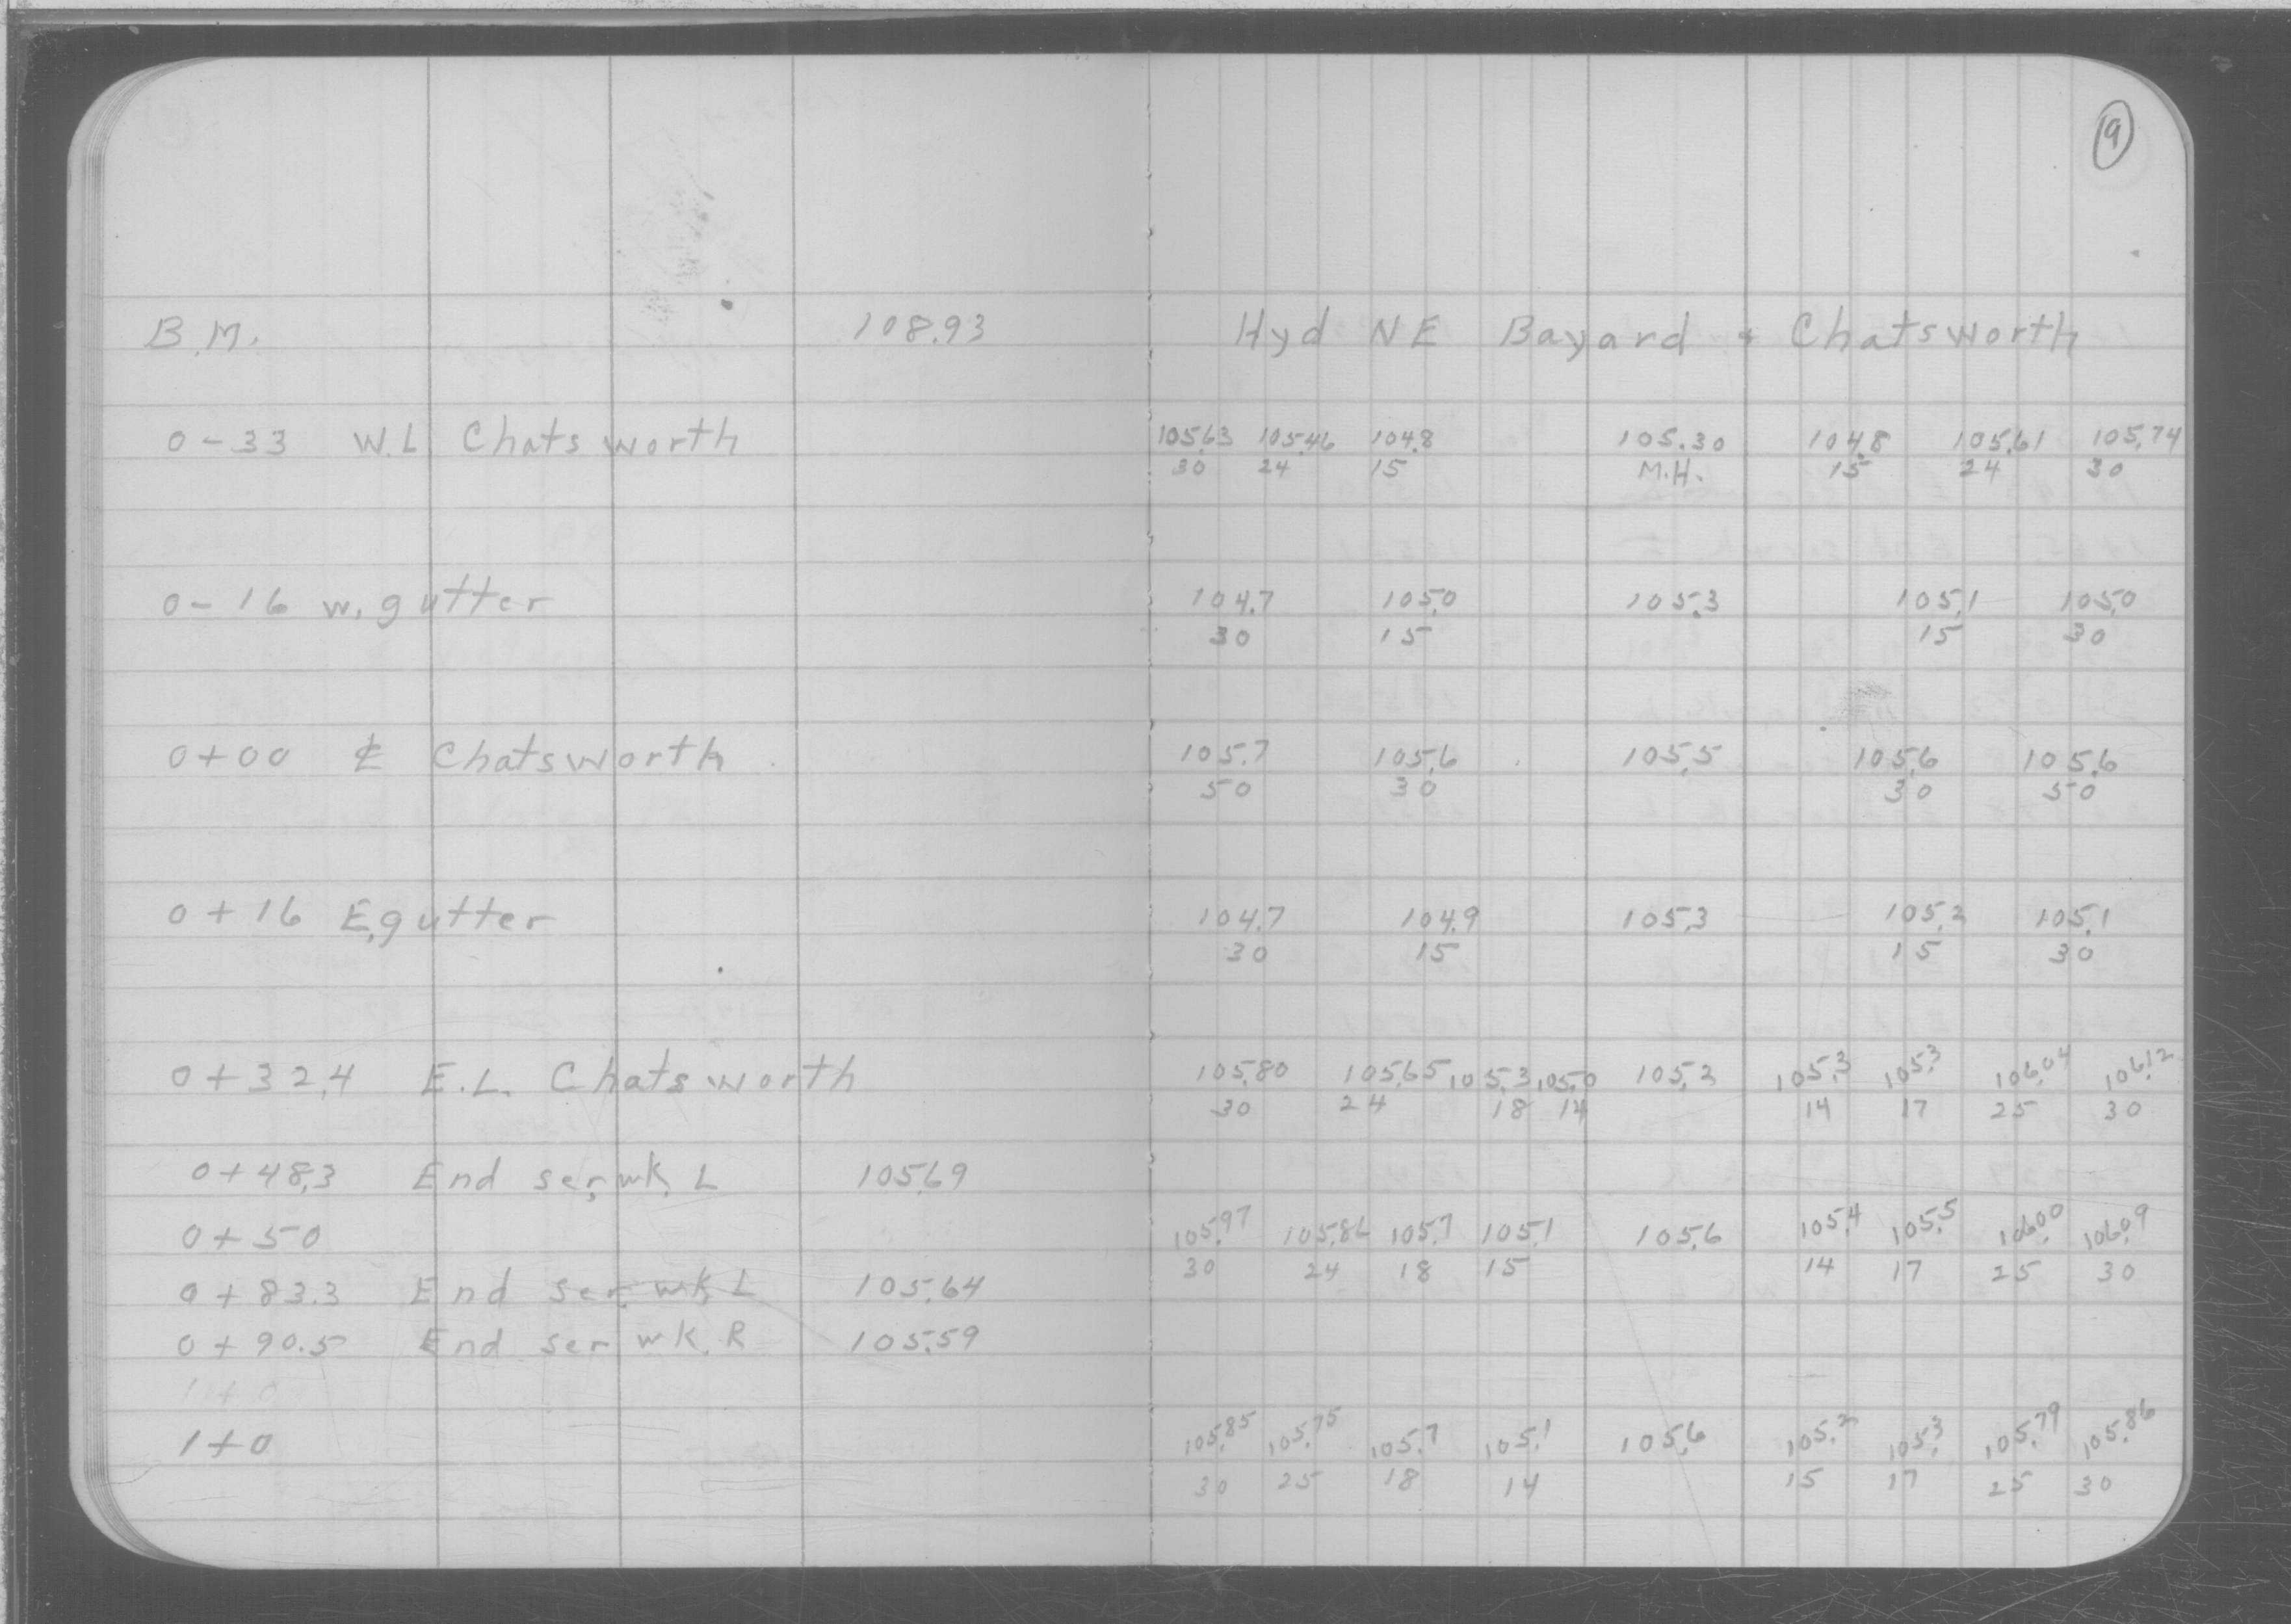 19
B.M. 108.93 Hyd NE Bayard + Chatsworth
0-33 W.L Chatsworth 105.63 105.46 104.8 105.30 104.8 105.61 105.74
30 24 15 M.H. 15 24 30
0-16 w. gutter 104.7 105.0 105.3 105.1 105.0
30 15 15 30
0+00 ℄ Chatsworth 105.7 105.6 105.5 105.6 105.6
50 30 30 50
0+16 E. gutter 104.7 104.9 105.3 105.2 105.1
30 15 15 30
0+32.4 E.L. Chatsworth 105.80 105.65 105.3 105.0 105.2 105.3 105.3 106.04 106.12
30 24 18 14 14 17 25 30
0+48.3 End ser. wk. L 105.69
0+50 105.97 105.86 105.7 105.1 105.6 105.4 105.5 106.00 106.09
30 24 18 15 14 17 25 30
0+83.3 End ser. wk. L 105.64
0+90.5 End ser wk. R 105.59
1+0
1+0 105.85 105.75 105.7 105.1 105.6 105.2 105.3 105.79 105.86
30 25 18 14 15 17 25 30